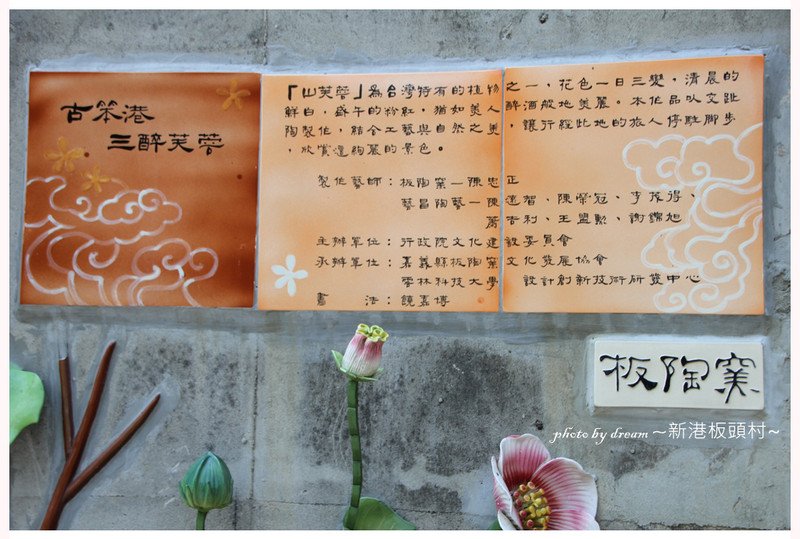 古笨港
三醉芙蓉
「山芙蓉」為台灣特有的植物之一，花色一日三變，清晨的
鮮白，盛午的粉紅，猶如美人醉酒般地美麗。本作品以交趾
陶製作，結合工藝與自然之美，讓行經此地的旅人停駐腳步
，欣賞這絢麗的景色。
製作藝師：板陶窯—陳忠正
藝昌陶藝—陳達智、陳榮冠、李茂得、
蕭吉利、王盟勳、謝錦旭
主辦單位：行政院文化建設委員會
承辦單位：嘉義縣板陶窯文化發展協會
雲林科技大學設計創新技術研發中心
書　法：饒嘉博
板陶窯
photo by dream ～新港板頭村～